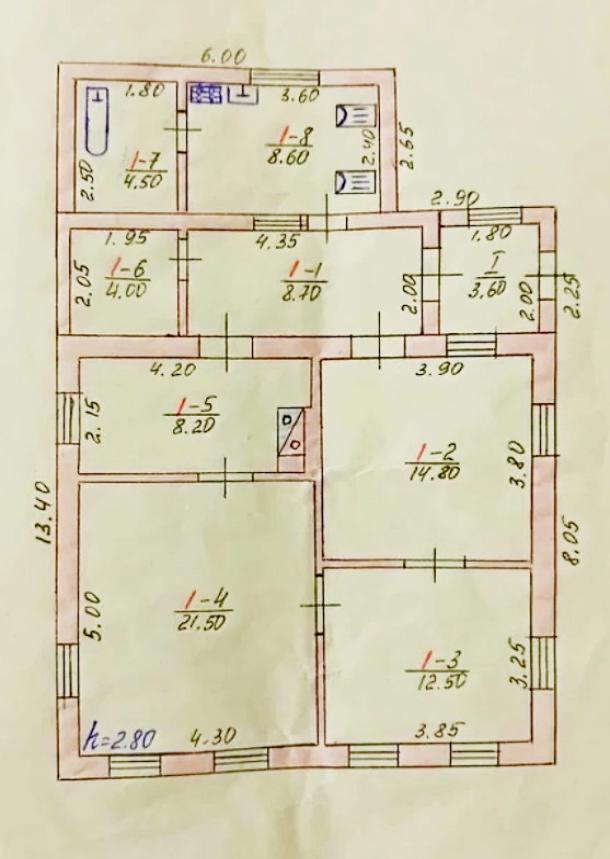 6.00
1.80
3.60
1-7
4.50
2.50
1-8
8.60
2.40
2.65
2.90
1.95
4.35
1.80
1-6
4.00
2.05
1-1
8.70
2.00
I
3.60
2.00
2.25
4.20
3.90
1-5
8.20
2.15
1-2
14.80
3.80
13.40
8.05
1-4
21.50
5.00
1-3
12.50
3.25
h=2.80
4.30
3.85